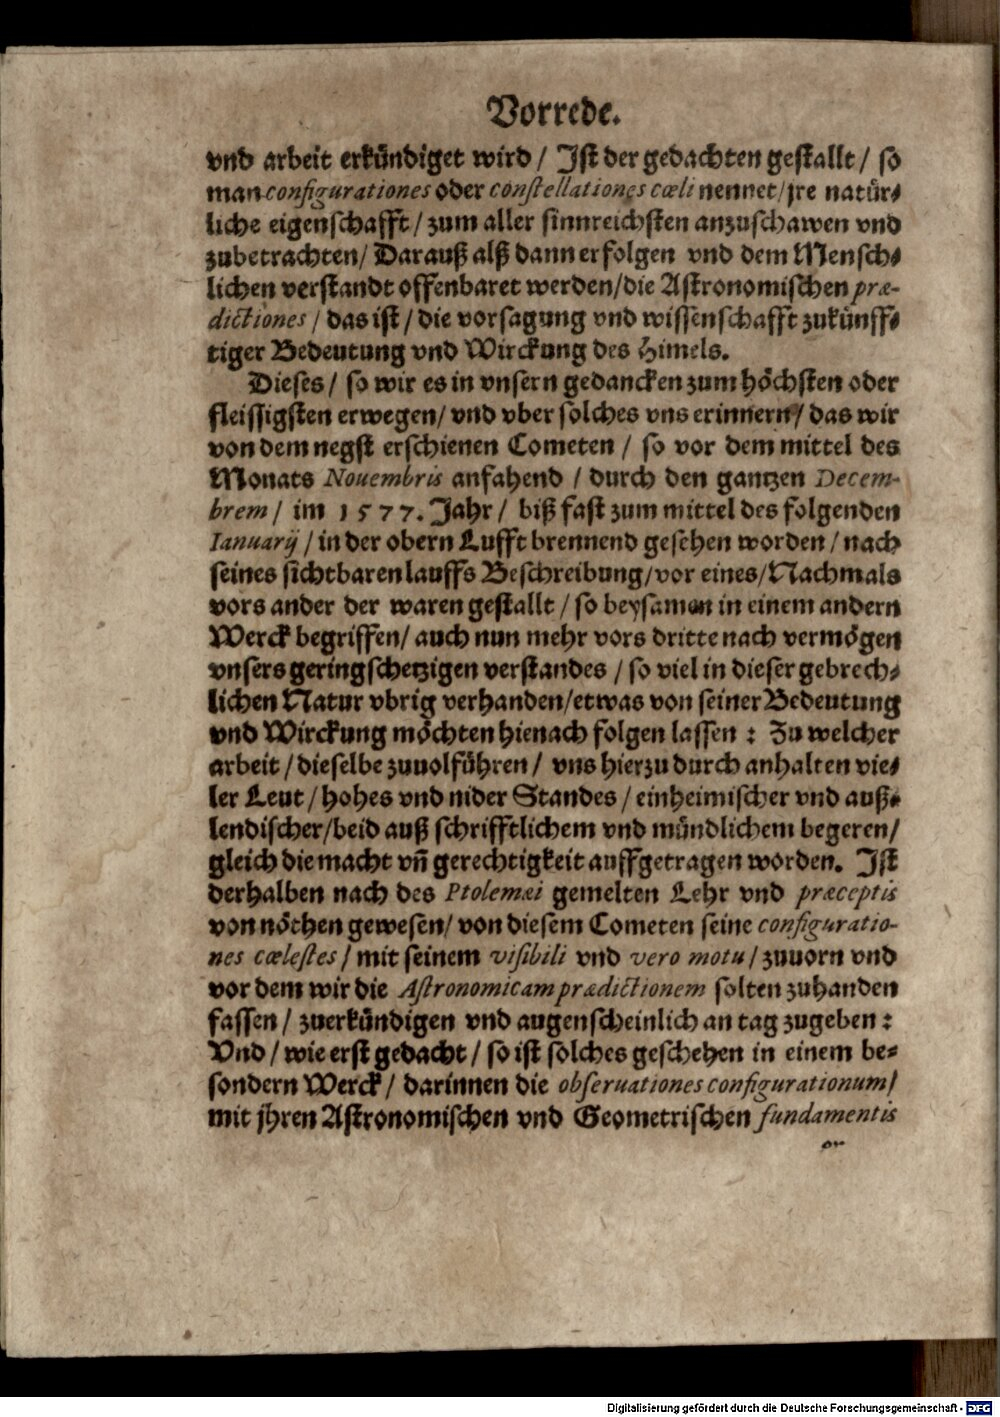 Vorrede.
vnd arbeit erkündiget wird / Ist der gedachten gestallt / so
man configurationes oder constellationes cœli nennet / jre natür-
liche eigenschafft / zum aller sinnreichsten anzuschawen vnd
zubetrachten / Darauß alß dann erfolgen vnd dem Mensch-
lichen verstandt offenbaret werden / die Astronomischen præ-
dictiones / das ist / die vorsagung vnd wissenschafft zukünff-
tiger Bedeutung vnd Wirckung des Himels.
Dieses / so wir es in vnsern gedancken zum höchsten oder
fleissigsten erwegen / vnd vber solches vns erinnern / das wir
von dem negst erschienen Cometen / so vor dem mittel des
Monats Nouembris anfahend / durch den gantzen Decem-
brem / im 1577. Jahr / biß fast zum mittel des folgenden
Ianuarij / in der obern Lufft brennend gesehen worden / nach
seines sichtbaren lauffs Beschreibung / vor eines / Nachmals
vors ander der waren gestallt / so beysamen in einem andern
Werck begriffen / auch nun mehr vors dritte nach vermögen
vnsers geringschetzigen verstandes / so viel in dieser gebrech-
lichen Natur vbrig verhanden / etwas von seiner Bedeutung
vnd Wirckung möchten hienach folgen lassen : Zu welcher
arbeit / dieselbe zuuolführen / vns hierzu durch anhalten vie-
ler Leut / hohes vnd nider Standes / einheimischer vnd auß-
lendischer / beid auß schrifftlichem vnd mündlichem begeren /
gleich die macht vñ gerechtigkeit auffgetragen worden. Ist
derhalben nach des Ptolemæi gemelten Lehr vnd præceptis
von nöthen gewesen / von diesem Cometen seine configuratio-
nes cœlestes / mit seinem visibili vnd vero motu / zuuorn vnd
vor dem wir die Astronomicam prædictionem solten zuhanden
fassen / zuerkündigen vnd augenscheinlich an tag zugeben :
Vnd / wie erst gedacht / so ist solches geschehen in einem be-
sondern Werck / darinnen die obseruationes configurationum /
mit jhren Astronomischen vnd Geometrischen fundamentis
Digitalisierung gefördert durch die Deutsche Forschungsgemeinschaft - DFG